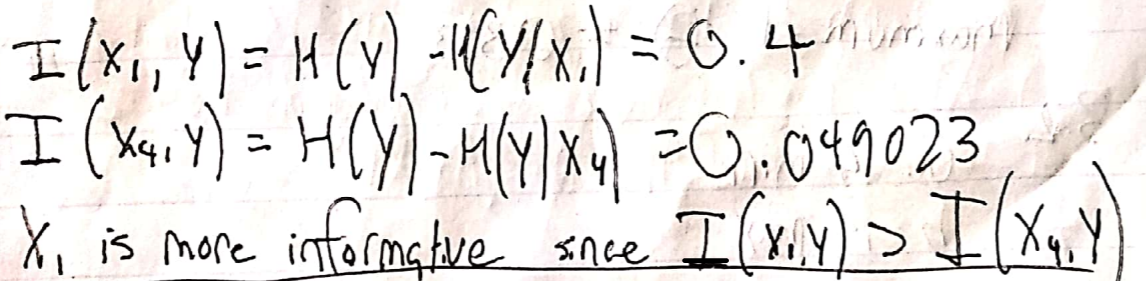 I(X₁, Y) = H(Y) - H(Y|X₁) = 0.4
I(X₄, Y) = H(Y) - H(Y|X₄) = 0.049023
X₁ is more informative since I(X₁,Y) > I(X₄,Y)